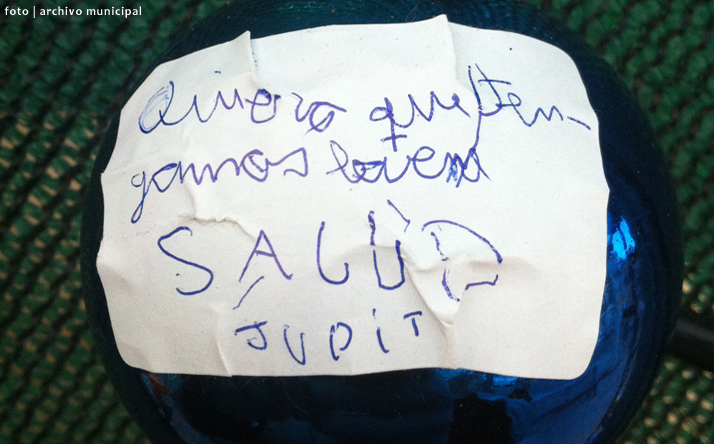 foto | archivo municipal
Quiero que ten-
gamos buena
SALUD
JUDIT